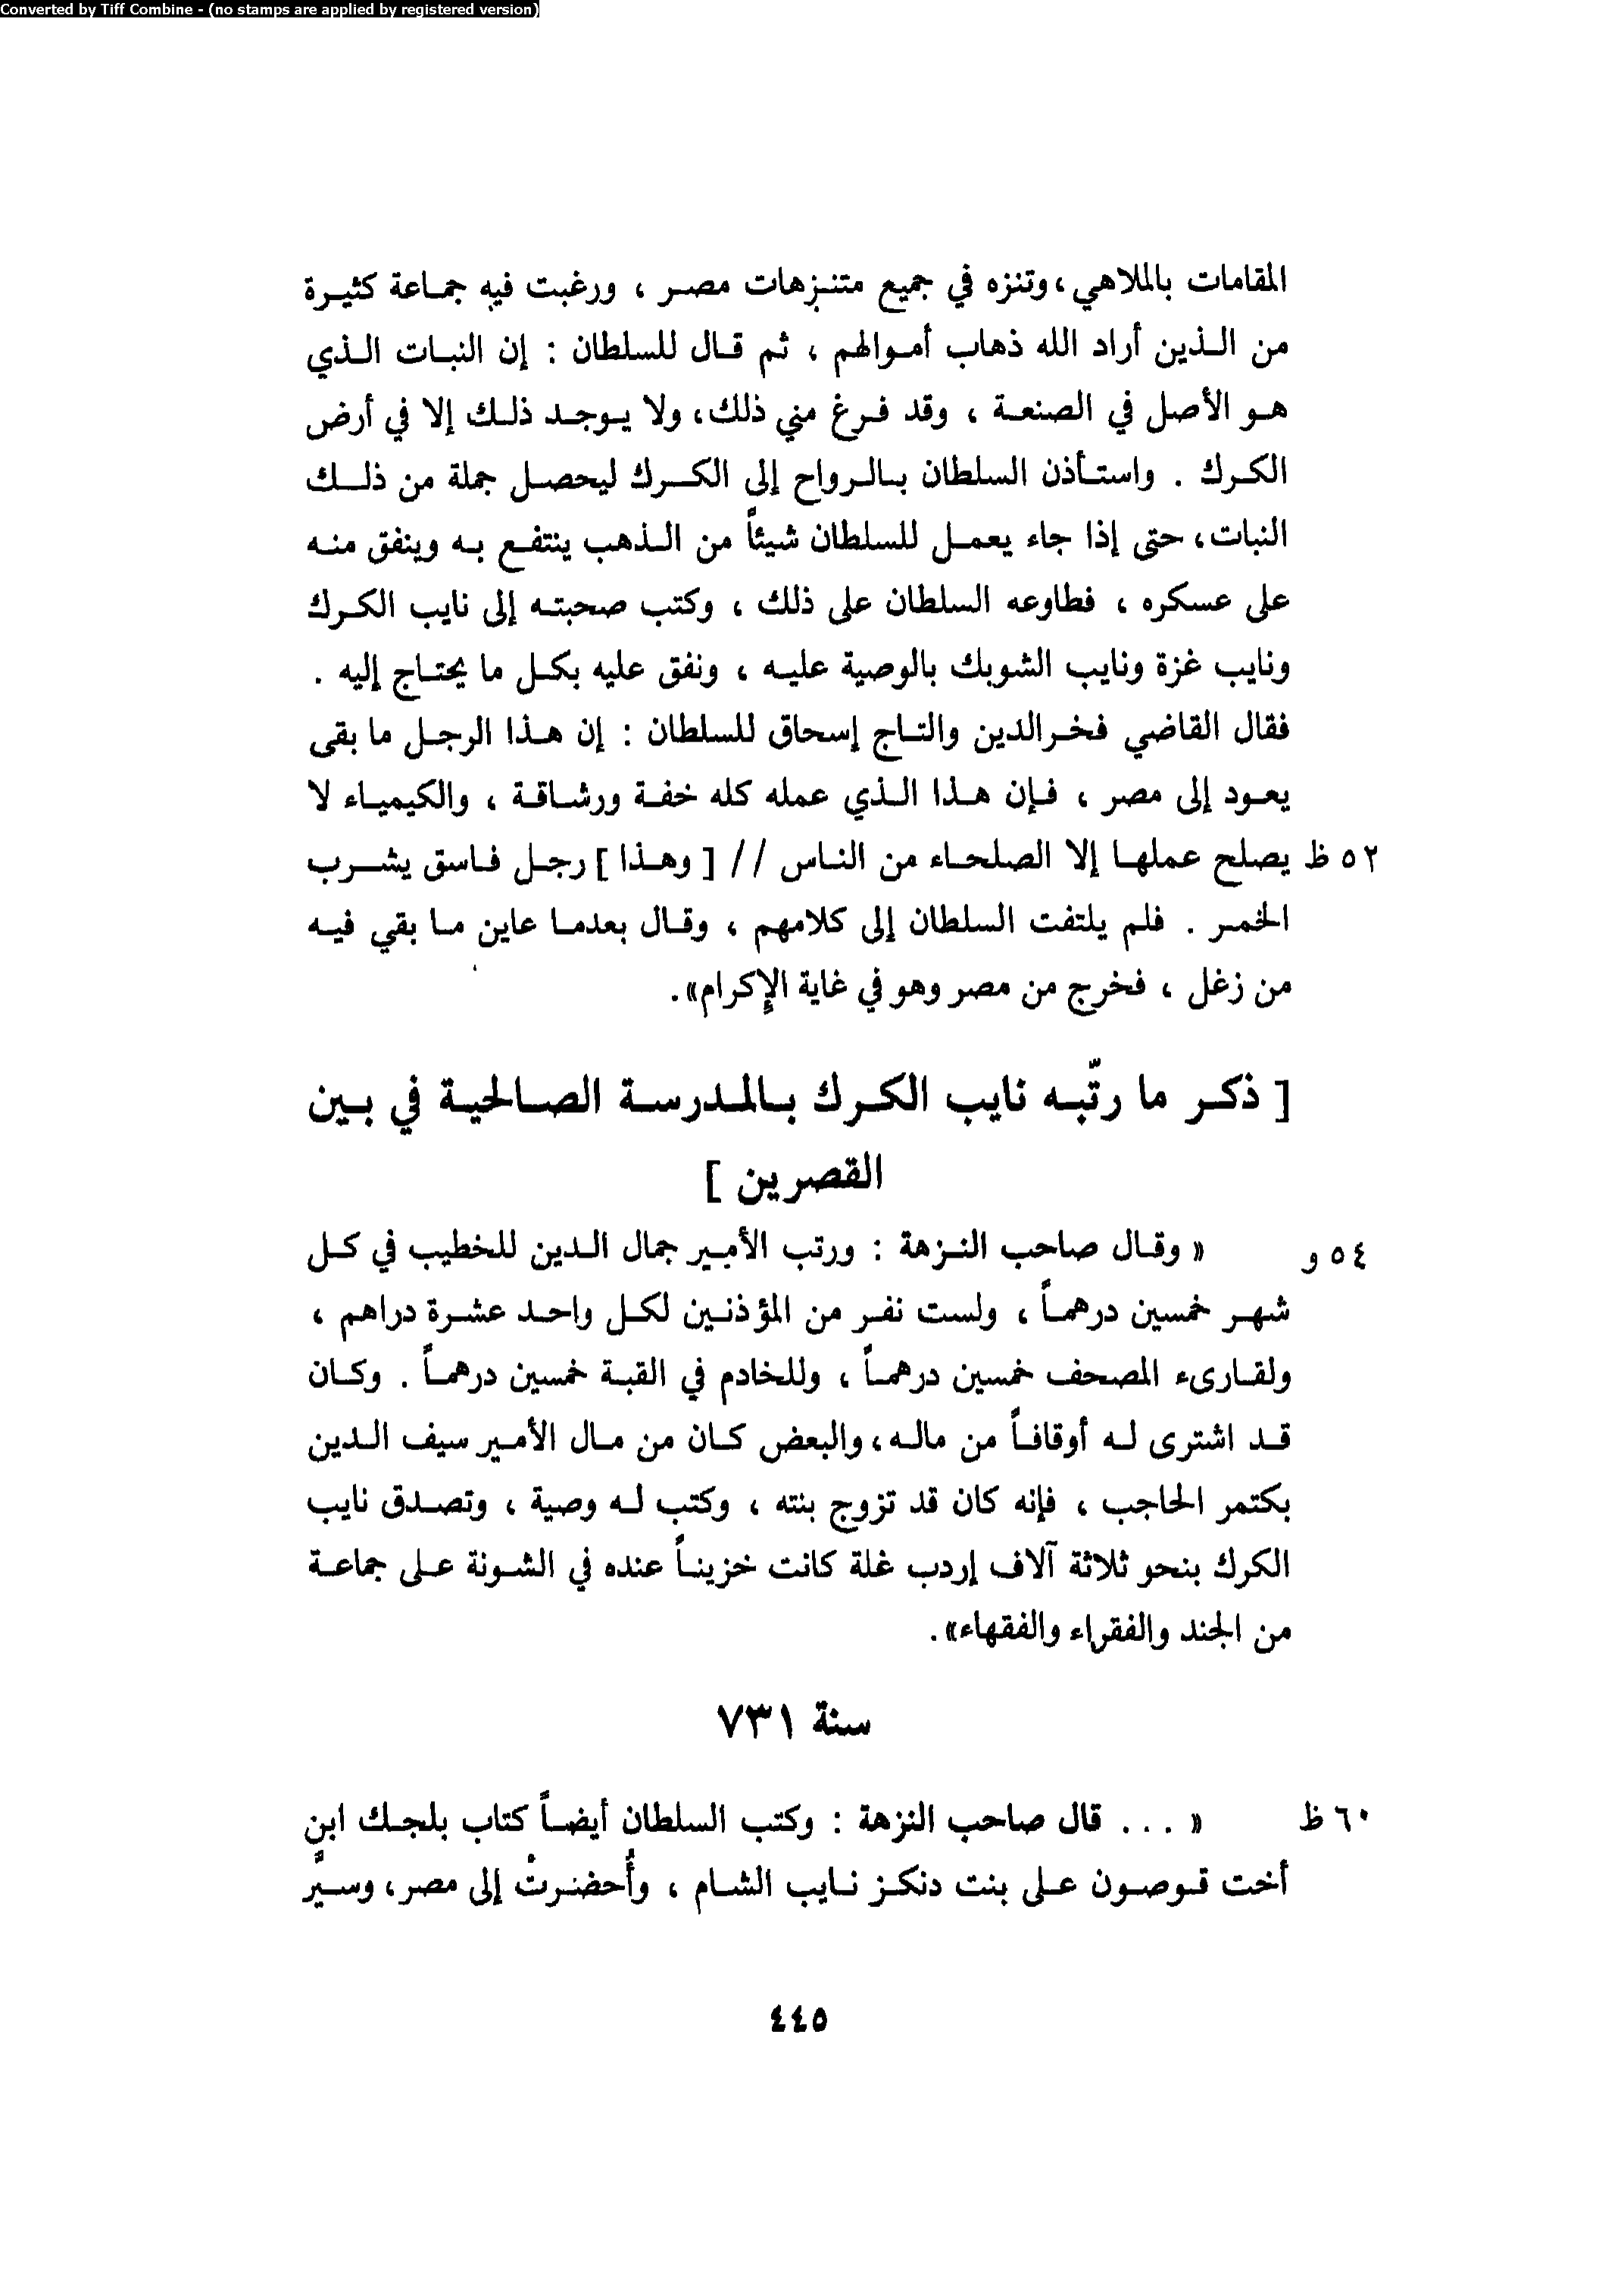 Converted by Tiff Combine - (no stamps are applied by registered version)
المقامات بالملاهي، وتنزه في جميع متنزهات مصر ، ورغبت فيه جماعة كثيرة
من الذين أراد الله ذهاب أموالهم ، ثم قال للسلطان : إن النبات الذي
هو الأصل في الصنعة ، وقد فرغ مني ذلك، ولا يوجد ذلك إلا في أرض
الكرك . واستأذن السلطان بالرواح إلى الكرك ليحصل جملة من ذلك
النبات، حتى إذا جاء يعمل للسلطان شيئاً من الذهب ينتفع به وينفق منه
على عسكره ، فطاوعه السلطان على ذلك ، وكتب صحبته إلى نايب الكرك
ونايب غزة ونايب الشوبك بالوصية عليه ، ونفق عليه بكل ما يحتاج إليه .
فقال القاضي فخرالدين والتاج إسحاق للسلطان : إن هذا الرجل ما بقى
يعود إلى مصر ، فإن هذا الذي عمله كله خفة ورشاقة ، والكيمياء لا
٥٢ ظ يصلح عملها إلا الصلحاء من الناس // [ وهذا ] رجل فاسق يشرب
الخمر . فلم يلتفت السلطان إلى كلامهم ، وقال بعدما عاين ما بقي فيه
من زغل ، فخرج من مصر وهو في غاية الإكرام».
[ ذكر ما رتّبه نايب الكرك بالمدرسة الصالحية في بين
القصرين ]
٥٤ و « وقال صاحب النزهة : ورتب الأمير جمال الدين للخطيب في كل
شهر خمسين درهماً ، ولست نفر من المؤذنين لكل واحد عشرة دراهم ،
ولقارىء المصحف خمسين درهماً ، وللخادم في القبة خمسين درهماً . وكان
قد اشترى له أوقافاً من ماله، والبعض كان من مال الأمير سيف الدين
بكتمر الحاجب ، فإنه كان قد تزوج بنته ، وكتب له وصية ، وتصدق نايب
الكرك بنحو ثلاثة آلاف إردب غلة كانت خزيناً عنده في الشونة على جماعة
من الجند والفقراء والفقهاء».
سنة ٧٣١
٦٠ ظ « ... قال صاحب النزهة : وكتب السلطان أيضاً كتاب بلجك ابن
أخت قوصون على بنت دنكز نايب الشام ، وأُحضرتْ إلى مصر، وسيَّر
٤٤٥